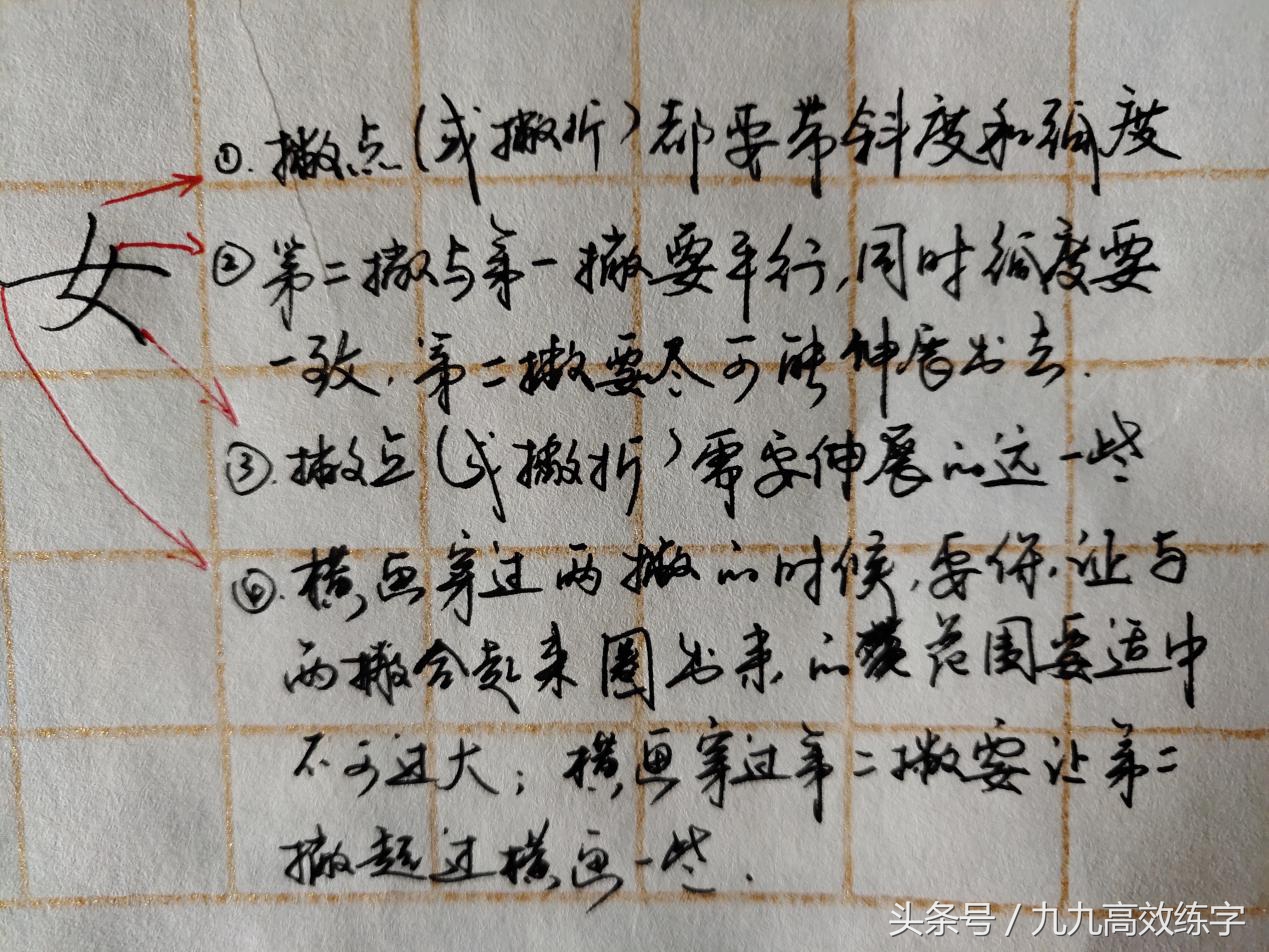 女
①.撇点(或撇折)都要带斜度和弧度
②第二撇与第一撇要平行,同时弧度要
一致.第二撇要尽可能伸展出去.
③.撇点(或撇折)需要伸展的远一些
④.横画穿过两撇的时候,要保证与
两撇合起来圈出来的范围要适中
不可过大;横画穿过第二撇要让第二
撇超过横画一些.
头条号/九九高效练字